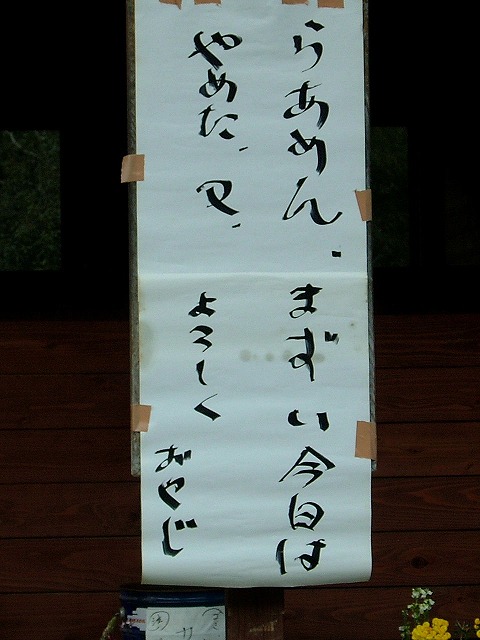 らあめん.まずい今日は
やめた.又.よろしく
おやじ